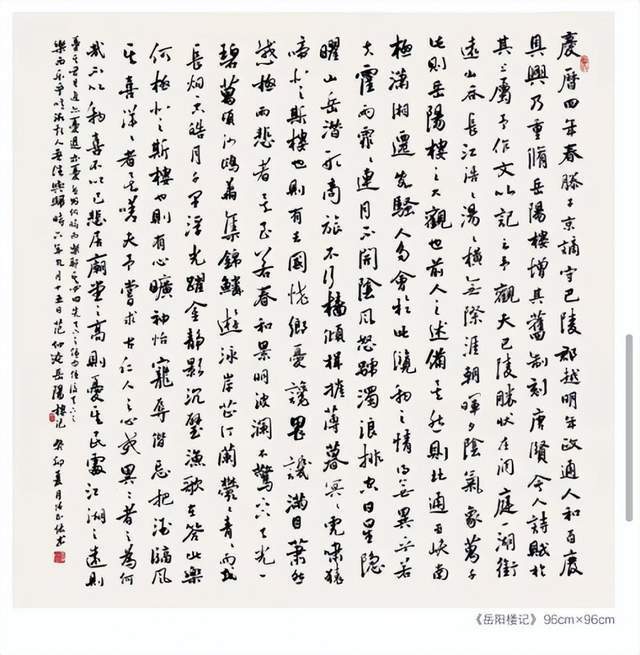 慶曆四年春滕子京謫守巴陵郡越明年政通人和百廢
具興乃重脩岳陽樓增其舊制刻唐賢今人詩賦於
其上屬予作文以記之予觀夫巴陵勝狀在洞庭一湖銜
遠山吞長江浩浩湯湯橫無際涯朝暉夕陰氣象萬千
此則岳陽樓之大觀也前人之述備矣然則北通巫峽南
極瀟湘遷客騷人多會於此覽物之情得無異乎若
夫霪雨霏霏連月不開陰風怒號濁浪排空日星隱
曜山岳潛形商旅不行檣傾楫摧薄暮冥冥虎嘯猿
啼登斯樓也則有去國懷鄉憂讒畏譏滿目蕭然
感極而悲者矣至若春和景明波瀾不驚上下天光一
碧萬頃沙鷗翔集錦鱗遊泳岸芷汀蘭鬱鬱青青而或
長烟一空皓月千里浮光躍金靜影沉璧漁歌互答此樂
何極登斯樓也則有心曠神怡寵辱偕忘把酒臨風
其喜洋洋者矣嗟夫予嘗求古仁人之心或異二者之為何
哉不以物喜不以己悲居廟堂之高則憂其民處江湖之遠則
憂其君是進亦憂退亦憂然則何時而樂耶其必曰先天下之憂而憂後天下之
樂而樂乎噫微斯人吾誰與歸時六年九月十五日范仲淹岳陽樓記 癸卯夏月書
《岳阳楼记》96cm×96cm